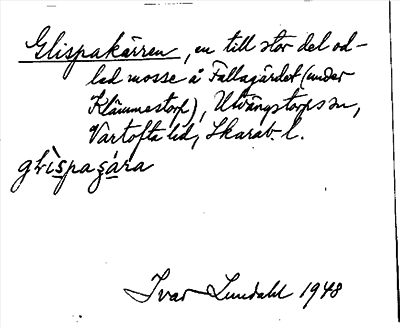 Glispakärren, en till stor del od-
lad mosse å Fallagärdet (under
Klämmestorp), Utvängstorps sn,
Vartofta hd, Skarab. l.
glìspaçára
Ivar Lundahl 1948